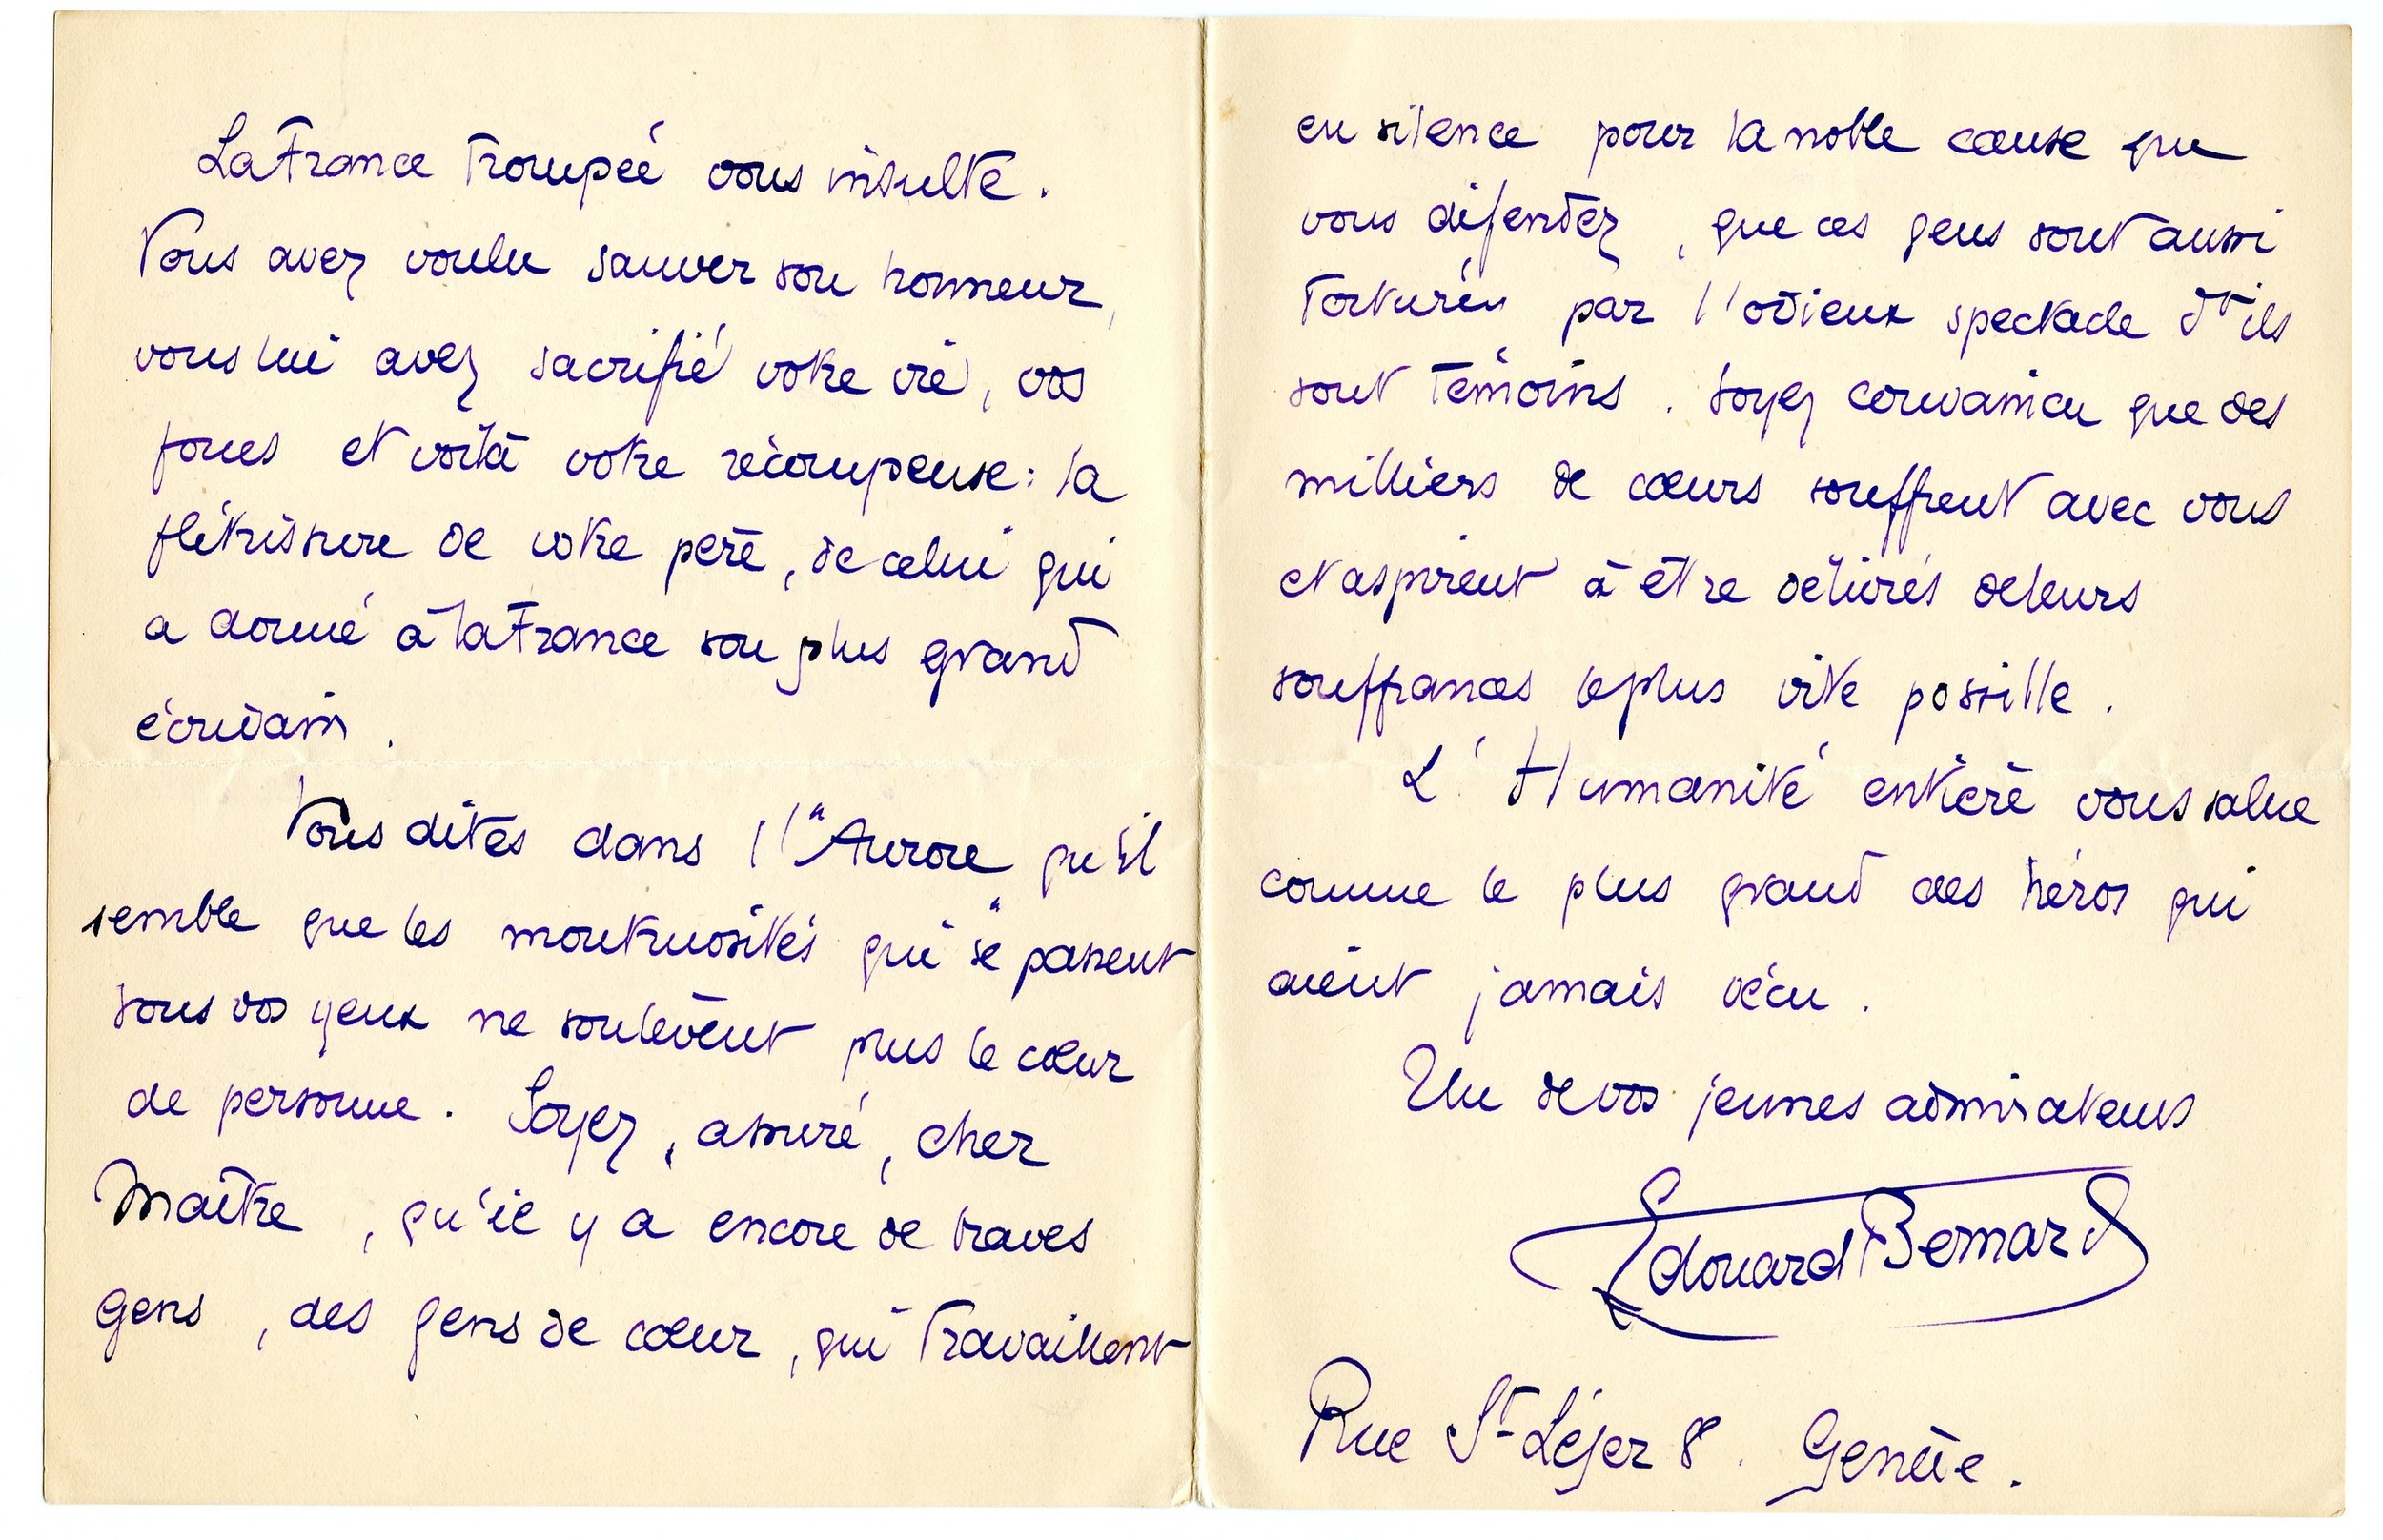 La France trompée vous insulte.
Vous avez voulu sauver son honneur,
vous lui avez sacrifié votre vie, vos
forces et voilà votre récompense: la
flétrissure de votre père, de celui qui
a donné à la France son plus grand
écrivain.
Vous dites dans l'"Aurore" qu'il
semble que les monstruosités qui se passent
sous vos yeux ne soulèvent plus le cœur
de personne. Soyez, assuré, cher
Maître, qu'il y a encore de braves
gens, des gens de cœur, qui travaillent
en silence pour la noble cause que
vous défendez, que ces gens sont aussi
torturés par l'odieux spectacle dt ils
sont témoins. Soyez convaincu que des
milliers de cœurs souffrent avec vous
et aspirent à être délivrés de leurs
souffrances le plus vite possible.
L'Humanité entière vous salue
comme le plus grand des héros qui
aient jamais vécu.
Un de vos jeunes admirateurs
Edouard Bernard
Rue St-Léger 8. Genève.